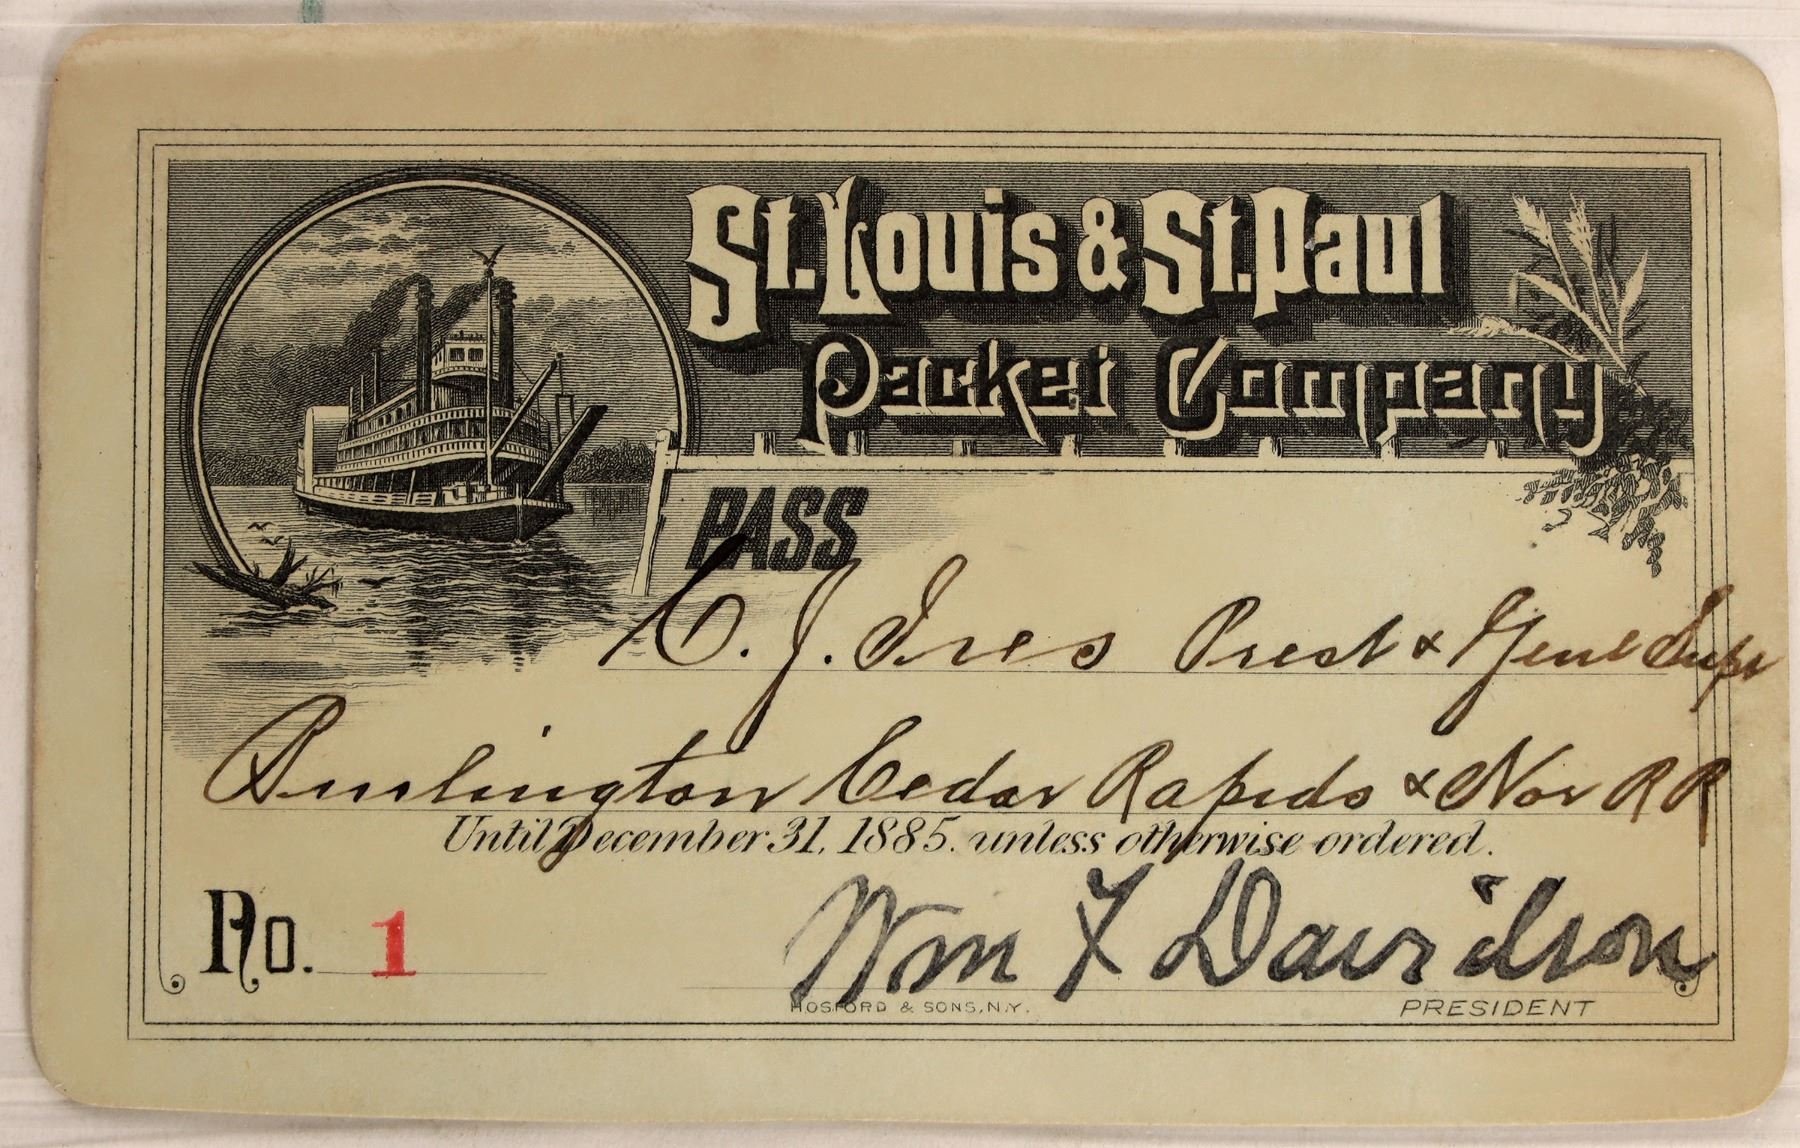 St. Louis & St. Paul
Packet Company
PASS
C. J. Ives Prest & Genl Supt
Burlington Cedar Rapids & Nor RR
Until December 31, 1885. unless otherwise ordered.
No. 1
Wm F Davidson
HOSFORD & SONS, N.Y.
PRESIDENT